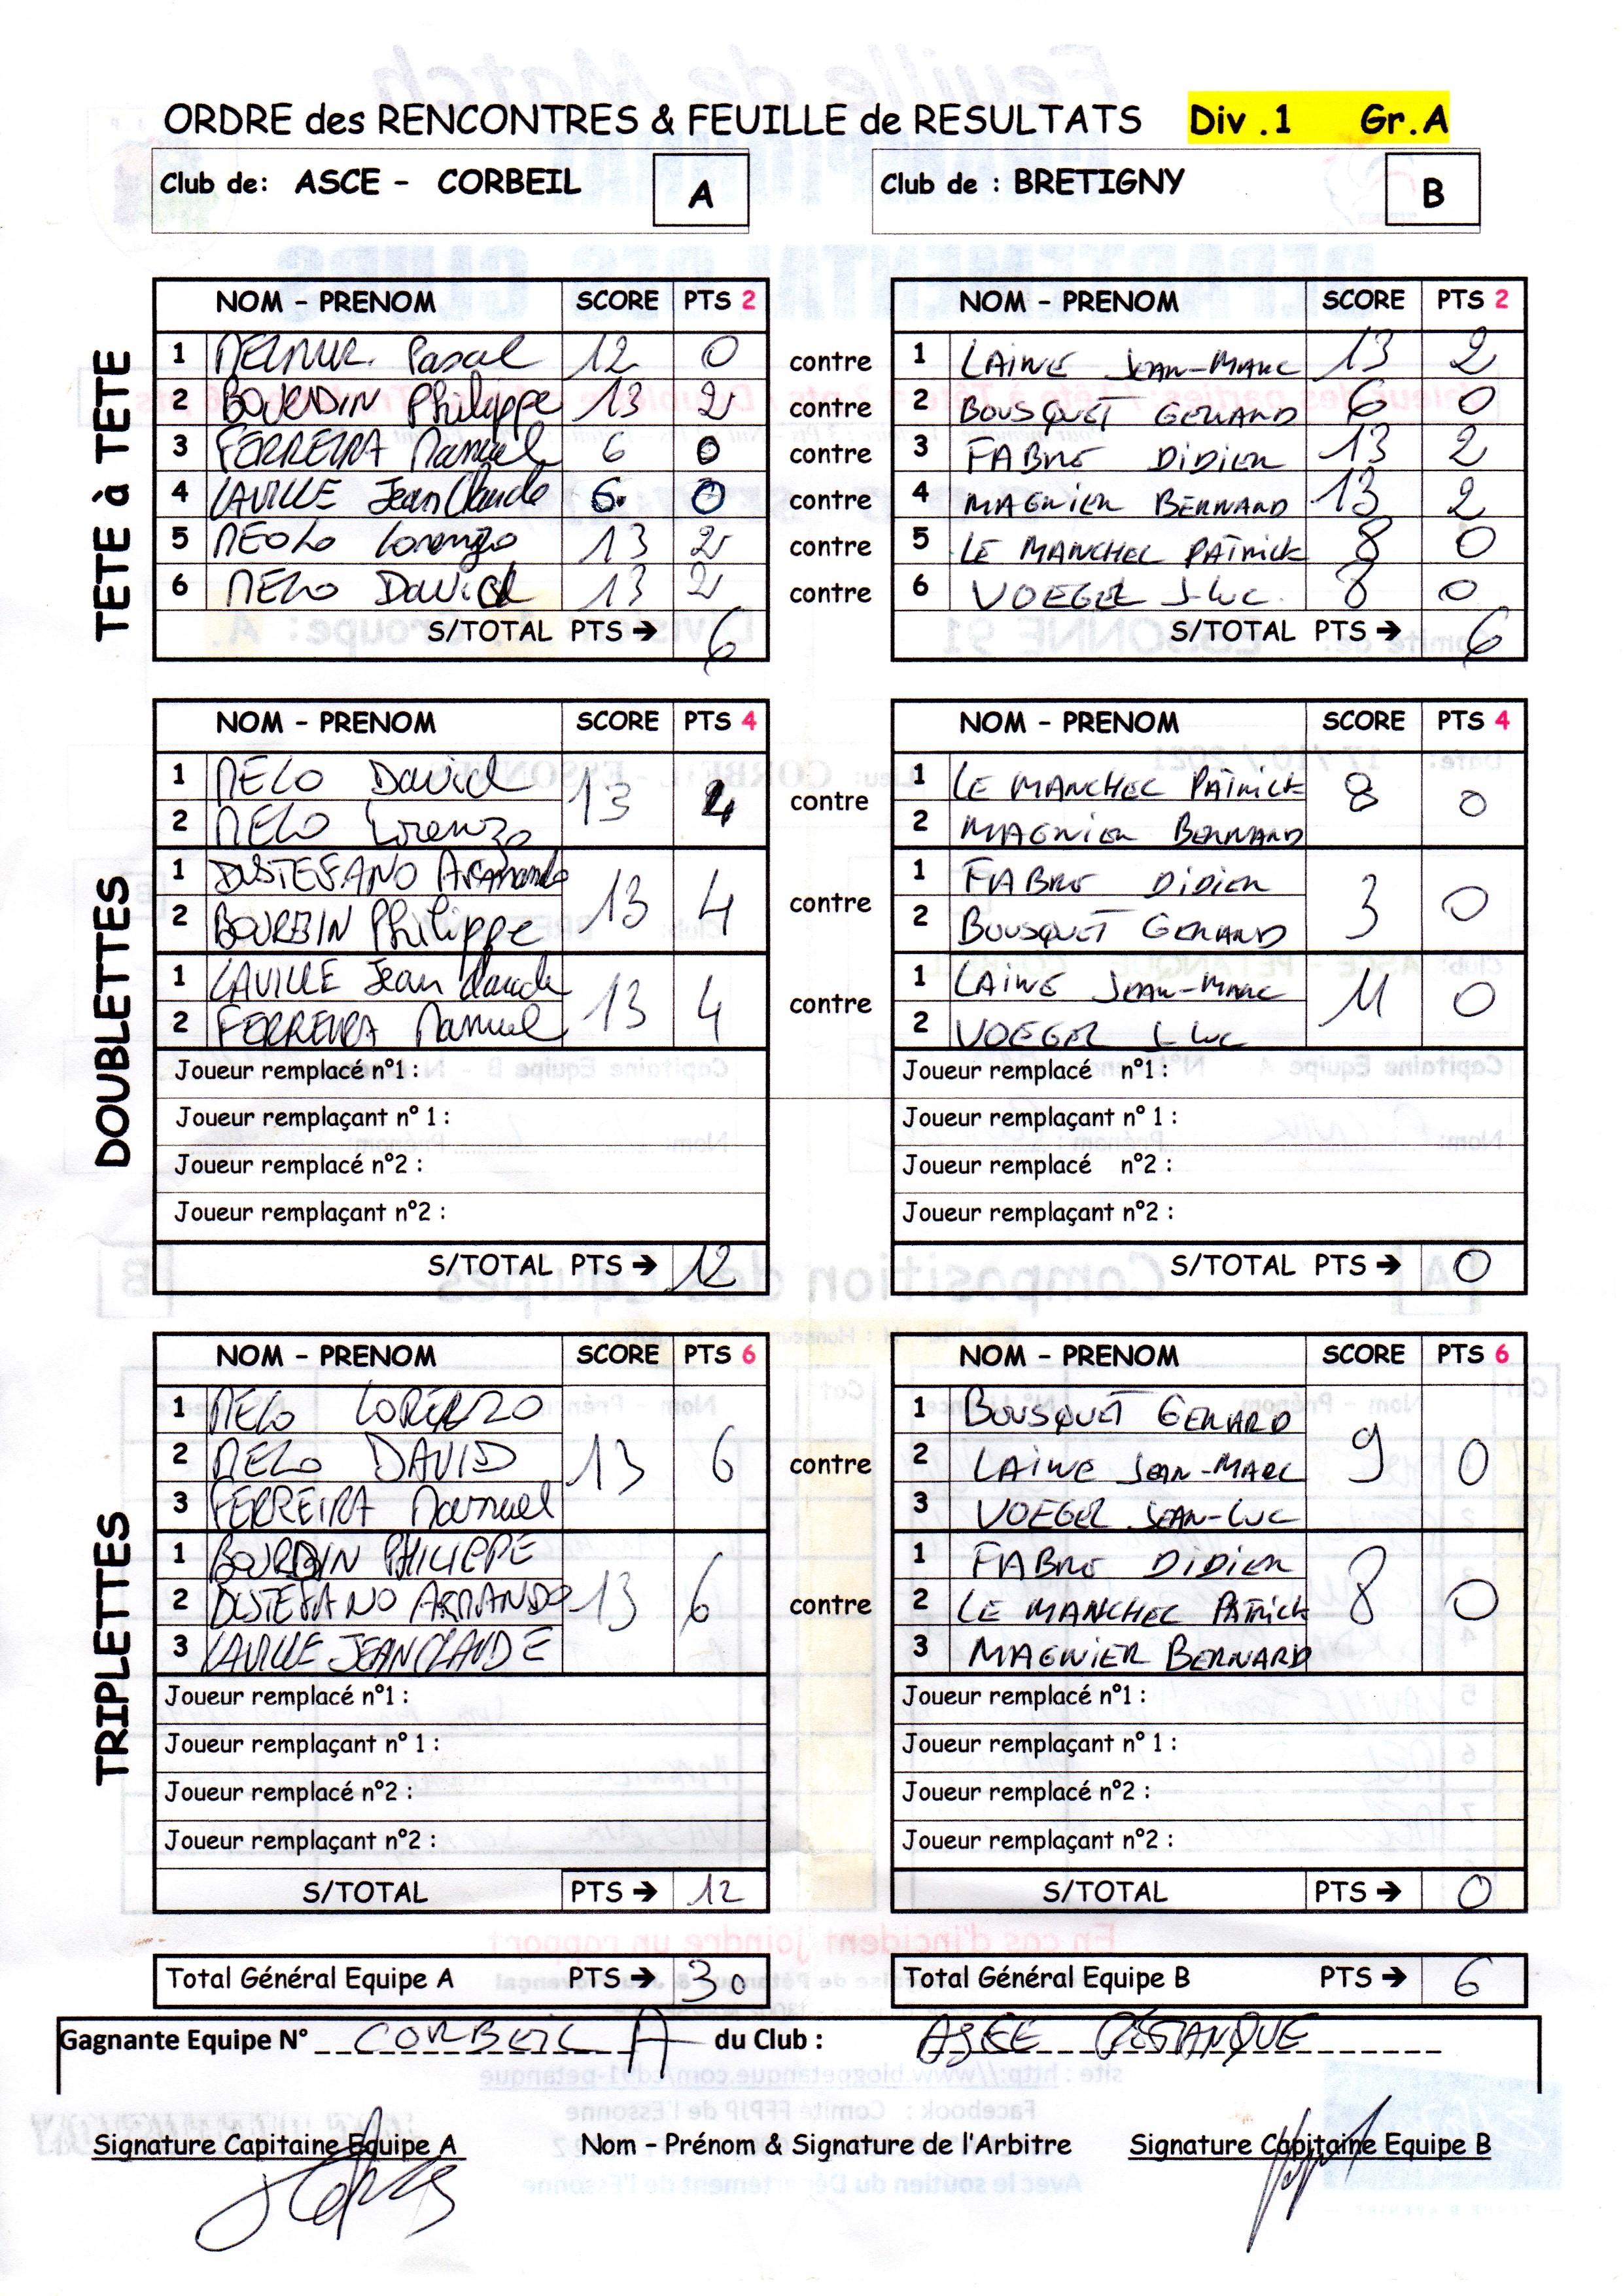 ORDRE des RENCONTRES & FEUILLE de RESULTATS Div .1 Gr.A
Club de: ASCE - CORBEIL A Club de : BRETIGNY B
TETE à TETE
NOM - PRENOM SCORE PTS 2 NOM - PRENOM SCORE PTS 2
1 Pascal 12 0 contre 1 LAINE JEAN-MARC 13 2
2 BOURDIN Philippe 13 2 contre 2 BOUSQUET GERARD 6 0
3 FERREIRA Manuel 6 0 contre 3 FABRE DIDIER 13 2
4 LAVILLE Jean Claude 6 0 contre 4 MAGNIER BERNARD 13 2
5 MELO Lorenzo 13 2 contre 5 LE MANCHEC PATRICK 8 0
6 MELO David 13 2 contre 6 VOEGEL J-LUC 8 0
S/TOTAL PTS → 6 S/TOTAL PTS → 6
DOUBLETTES
NOM - PRENOM SCORE PTS 4 NOM - PRENOM SCORE PTS 4
1 MELO David 13 4 contre 1 LE MANCHEC PATRICK 8 0
2 MELO Lorenzo 2 MAGNIER BERNARD
1 DISTEFANO Armando 13 4 contre 1 FABRE DIDIER 3 0
2 BOURDIN Philippe 2 BOUSQUET GERARD
1 LAVILLE Jean Claude 13 4 contre 1 LAINE JEAN-MARC 11 0
2 FERREIRA Manuel 2 VOEGEL J LUC
Joueur remplacé n°1 : Joueur remplacé n°1 :
Joueur remplaçant n° 1 : Joueur remplaçant n° 1 :
Joueur remplacé n°2 : Joueur remplacé n°2 :
Joueur remplaçant n°2 : Joueur remplaçant n°2 :
S/TOTAL PTS → 12 S/TOTAL PTS → 0
TRIPLETTES
NOM - PRENOM SCORE PTS 6 NOM - PRENOM SCORE PTS 6
1 MELO LORENZO 13 6 contre 1 BOUSQUET GERARD 9 0
2 MELO DAVID 2 LAINE JEAN-MARC
3 FERREIRA Manuel 3 VOEGEL JEAN-LUC
1 BOURDIN PHILIPPE 13 6 contre 1 FABRE DIDIER 8 0
2 DISTEFANO ARMANDO 2 LE MANCHEC PATRICK
3 LAVILLE JEAN CLAUDE 3 MAGNIER BERNARD
Joueur remplacé n°1 : Joueur remplacé n°1 :
Joueur remplaçant n° 1 : Joueur remplaçant n° 1 :
Joueur remplacé n°2 : Joueur remplacé n°2 :
Joueur remplaçant n°2 : Joueur remplaçant n°2 :
S/TOTAL PTS → 12 S/TOTAL PTS → 0
Total Général Equipe A PTS → 30 Total Général Equipe B PTS → 6
Gagnante Equipe N° CORBEIL A du Club : ASCE PETANQUE
Signature Capitaine Equipe A Nom - Prénom & Signature de l'Arbitre Signature Capitaine Equipe B